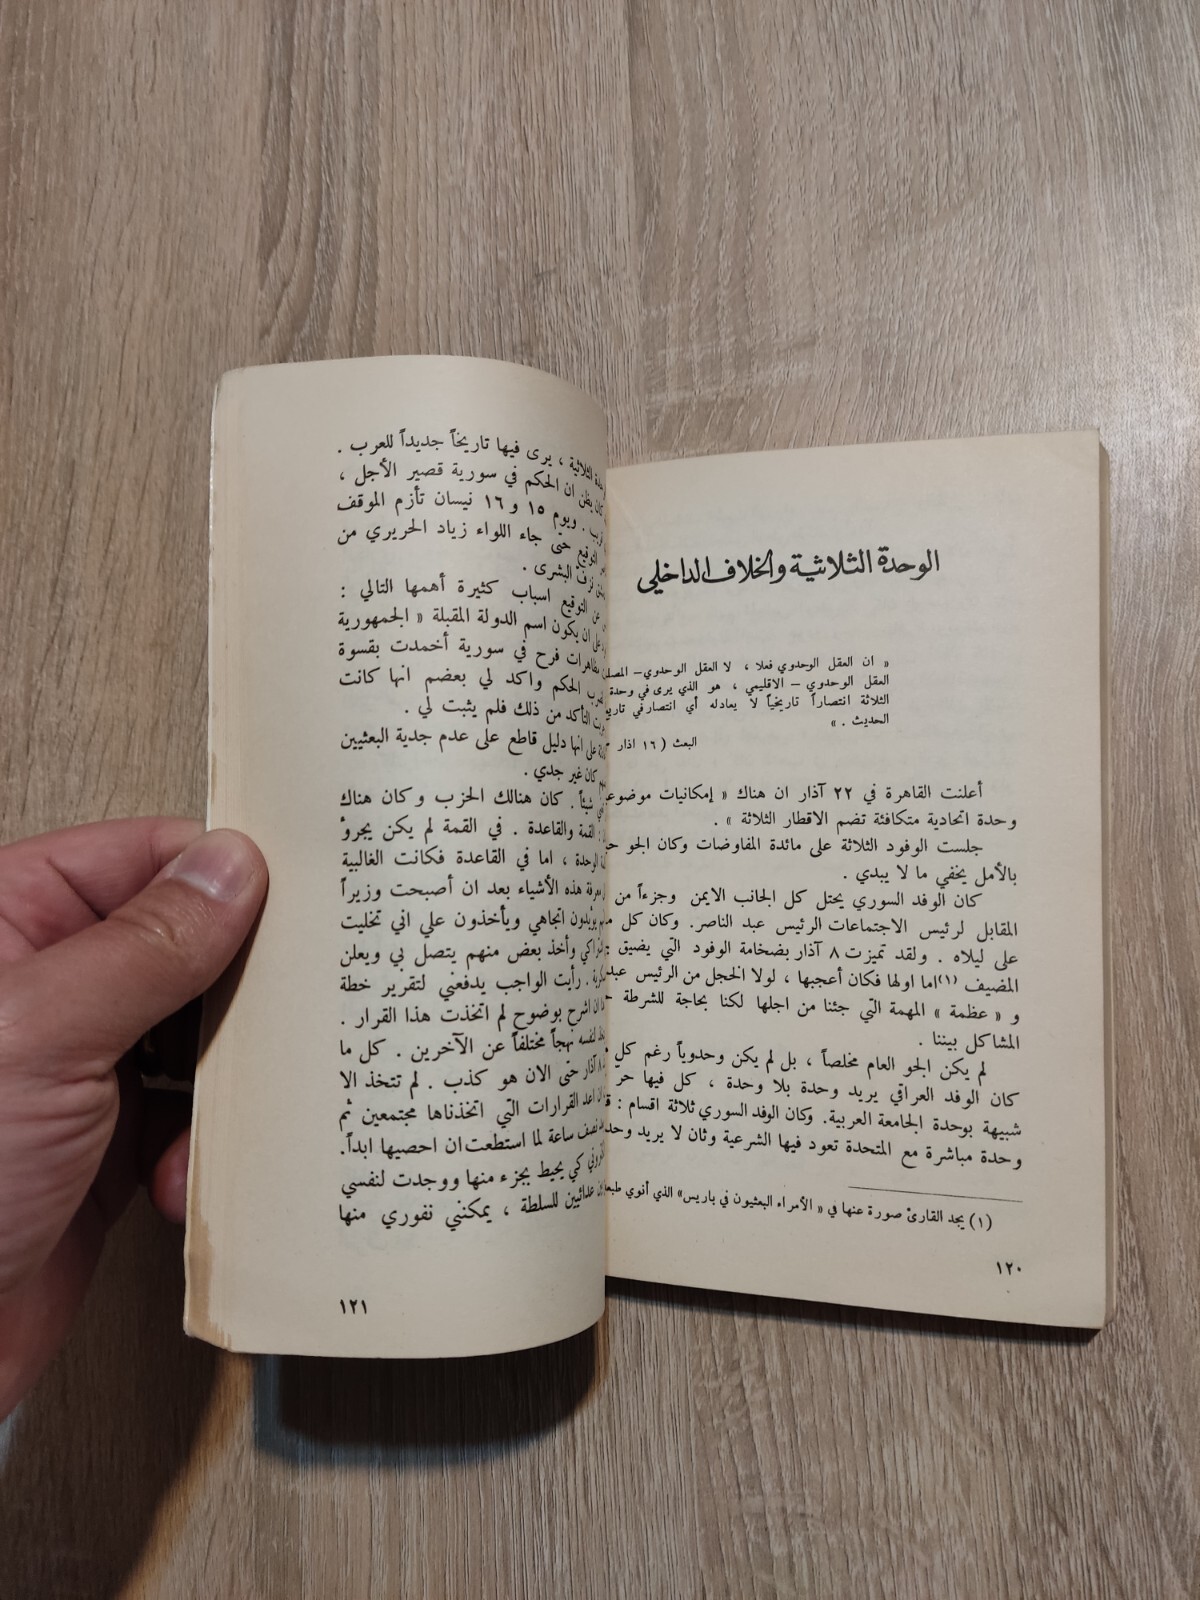 الوحدة الثلاثية والخلاف الداخلي
« ان العقل الوحدوي فعلا ، لا العقل الوحدوي – المصلـ
العقل الوحدوي – الاقليمي ، هو الذي يرى في وحدة
الثلاثة انتصاراً تاريخياً لا يعادله أي انتصار في تاريـ
الحديث . »
البعث ( ١٦ اذار
أعلنت القاهرة في ٢٢ آذار ان هناك « إمكانيات موضوعيـ
وحدة اتحادية متكافئة تضم الاقطار الثلاثة » .
جلست الوفود الثلاثة على مائدة المفاوضات وكان الجو
بالأمل يخفي ما لا يبدي .
كان الوفد السوري يحتل كل الجانب الايمن وجزءاً من
المقابل لرئيس الاجتماعات الرئيس عبد الناصر. وكان كل
على ليلاه . ولقد تميزت ٨ آذار بضخامة الوفود التي يضيق
المضيف (١) اما اولها فكان أعجبها ، لولا الخجل من الرئيس عبد
و « عظمة » المهمة التي جئنا من اجلها لكنا بحاجة للشرطة
المشاكل بيننا .
لم يكن الجو العام مخلصاً ، بل لم يكن وحدوياً رغم كل
كان الوفد العراقي يريد وحدة بلا وحدة ، كل فيها حر
شبيهة بوحدة الجامعة العربية. وكان الوفد السوري ثلاثة اقسام :
وحدة مباشرة مع المتحدة تعود فيها الشرعية وثان لا يريد
(١) يجد القارئ صورة عنها في « الأمراء البعثيون في باريس» الذي أنوي
١٢٠
الثلاثية ، يرى فيها تاريخاً جديداً للعرب .
يظن ان الحكم في سورية قصير الأجل ،
. ويوم ١٥ و ١٦ نيسان تأزم الموقف
التوقيع حتى جاء اللواء زياد الحريري من
نزف البشرى .
عن التوقيع اسباب كثيرة أهمها التالي :
على ان يكون اسم الدولة المقبلة « الجمهورية
مظاهرات فرح في سورية أخمدت بقسوة
الحكم واكد لي بعضم انها كانت
التأكد من ذلك فلم يثبت لي .
على انها دليل قاطع على عدم جدية البعثيين
كان غير جدي .
شيئاً . كان هنالك الحزب وكان هناك
: القمة والقاعدة . في القمة لم يكن يجرؤ
الوحدة ، اما في القاعدة فكانت الغالبية
معرفة هذه الأشياء بعد ان أصبحت وزيراً
يؤيدون اتجاهي ويأخذون علي اني تخليت
وأخذ بعض منهم يتصل بي ويعلن
. رأيت الواجب يدفعني لتقرير خطة
ان اشرح بوضوح لم اتخذت هذا القرار .
لنفسه نهجاً مختلفاً عن الآخرين . كل ما
آذار حتى الان هو كذب . لم تتخذ الا
اعد القرارات التي اتخذناها مجتمعين ثم
نصف ساعة لما استطعت ان احصيها ابداً.
كي يحيط بجزء منها ووجدت لنفسي
عدائيين للسلطة ، يمكنني نفوري منها
١٢١